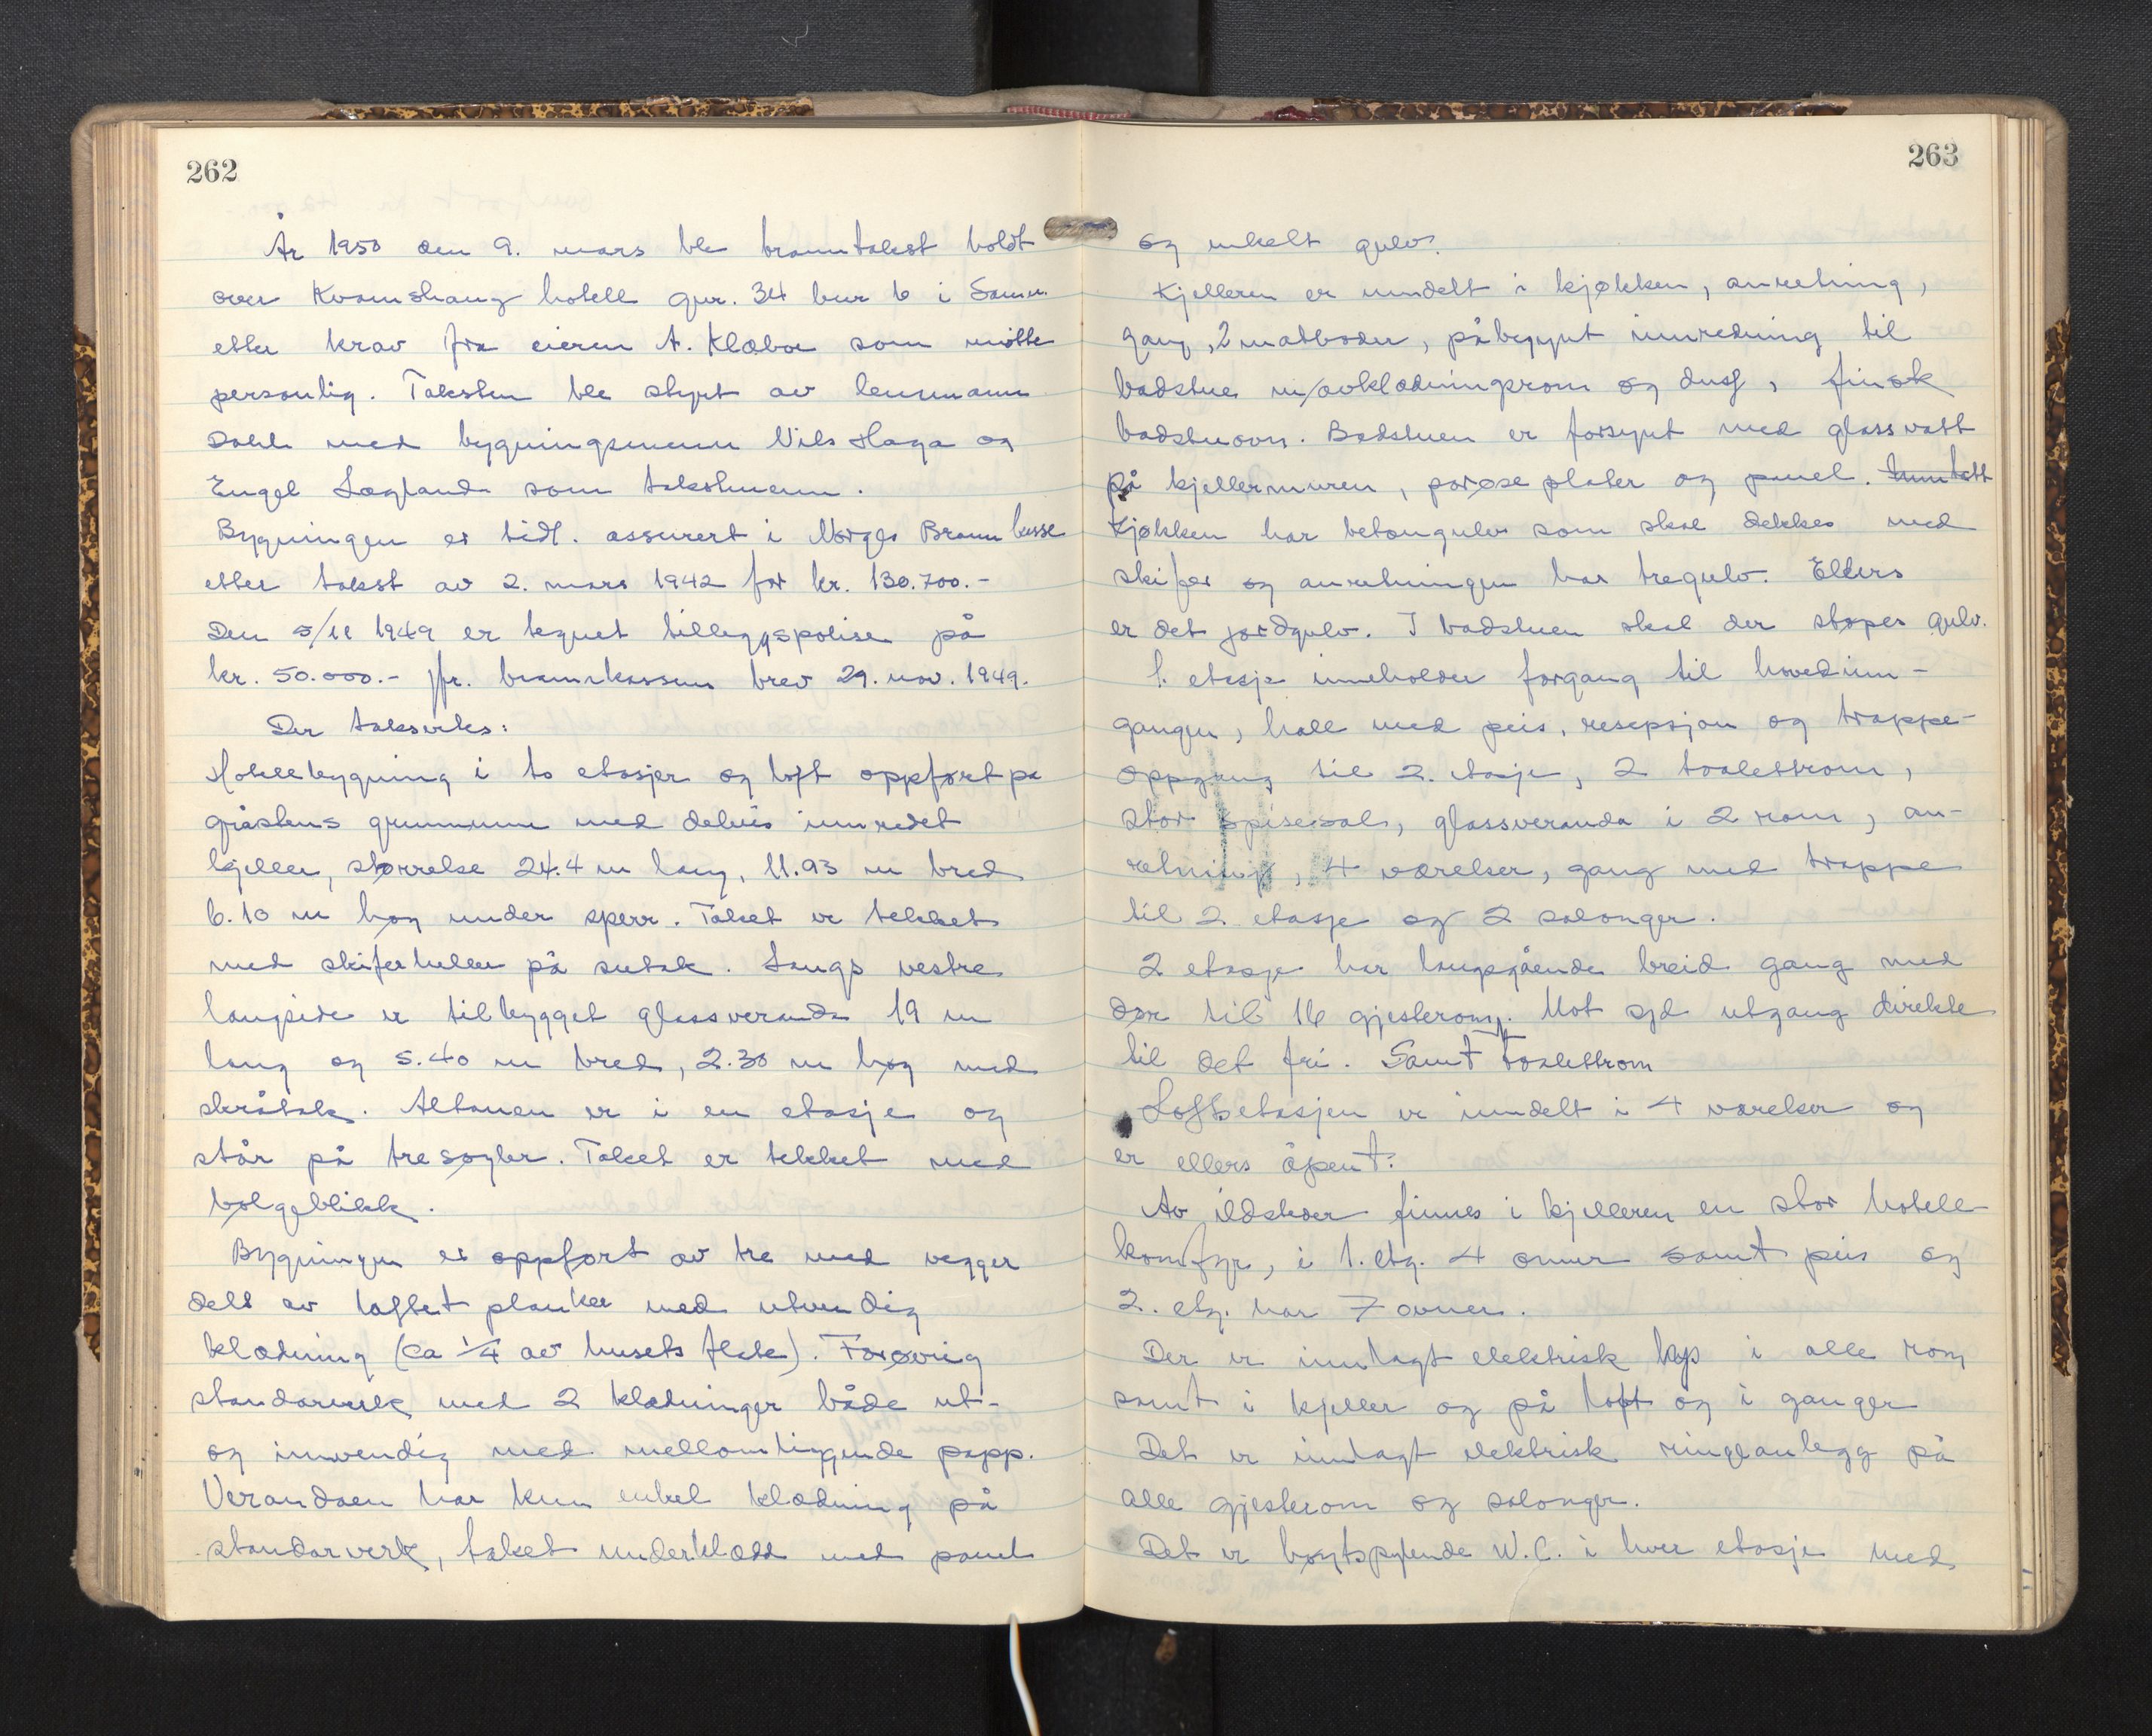 262
År 1950 den 9. mars ble branntakst holdt
over Kvamshaug hotell gnr. 34 bnr 6 i Samn.
etter krav fra eieren A. Klæboe som møtte
personlig. Taksten ble styrt av lensmann
Dahle med bygningsmenn Nils Haga og
Engel Løgland som takstmenn.
Bygningen er tidl. assurert i Norges Brannkasse
etter takst av 2. mars 1942 for kr. 130.700.-
Den 5/11 1949 er tegnet tilleggspolise på
kr. 50.000.- jfr. brannkassens brev 29. nov. 1949.
Der takseres:
Hotellbygning i to etasjer og loft oppført på
gråstens grunnmur med delvis innredet
kjeller, størrelse 24.4 m lang, 11.93 m bred
6.10 m høg under sperr. Taket er tekket
med skiferheller på sutak. Langs vestre
langside er tilbygget glassveranda 19 m
lang og 5.40 m bred, 2.30 m høg med
skråtak. Altanen er i en etasje og
står på tresøyler. Taket er tekket med
bølgeblikk.
Bygningen er oppført av tre med vegger
dels av laftet planker med utvendig
klædning (ca 1/4 av husets flate). Forøvrig
standarverk med 2 klædninger både ut-
og innvendig med mellomliggende papp.
Verandaen har kun enkel klædning på
standarverk, taket underklædd med panel
263
og enkelt gulv.
Kjelleren er inndelt i kjøkken, anretning,
gang, 2 matboder, påbegynt innredning til
badstue m/avklædningsrom og dusj, finsk
badstuovn. Badstuen er forsynt med glassvatt
på kjellermuren, porøse plater og panel. Inntatt
Kjøkken har betongulv som skal dekkes med
skifer og anretningen har tregulv. Ellers
er det jordgulv. I badstuen skal der støpes gulv.
1. etasje inneholder forgang til hovedinn-
gangen, hall med peis, resepsjon og trappe-
oppgang til 2. etasje, 2 toalettrom,
stor spisesal, glassveranda i 2 rom, an-
retning, 4 værelser, gang med trappe
til 2. etasje og 2 salonger.
2 etasje har langsgående breid gang med
dør til 16 gjesterom. Mot syd utgang direkte
til det fri. Samt toalettrom
Loftsetasjen er inndelt i 4 værelser og
er ellers åpent.
Av ildsteder finnes i kjelleren en stor hotell
komfyr, i 1. etg. 4 ovner samt peis og
2. etg. har 7 ovner.
Der er innlagt elektrisk lys i alle rom
samt i kjeller og på loft og i ganger
Det er innlagt elektrisk ringeanlegg på
alle gjesterom og salonger.
Det er høytspylende W.C. i hver etasje med